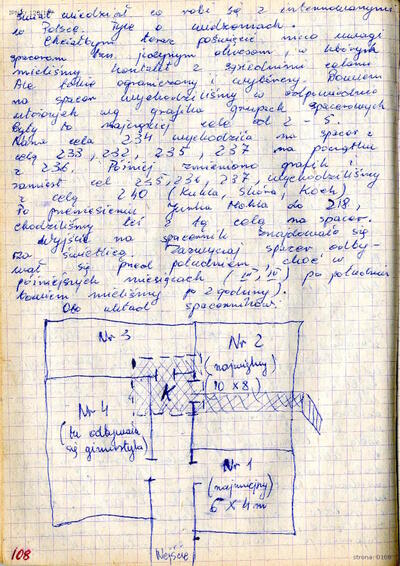 świat wiedział co robi się z internowanymi
w Polsce. Tyle o widzeniach.
Chciałbym teraz poświęcić nieco uwagi
spacerom tzn. jedynym okresom, w których
mieliśmy kontakt z sąsiednimi celami
Ale tylko ograniczony i wybiórczy. Bowiem
na spacer wychodziliśmy w odpowiednio
ułożonych wg grafika grupach spacerowych
Były to najczęściej cele od 2 - 5.
Nasza cela 234 wychodziła na spacer z
celą 233, 232, 235, 237 na początku
z 236. Później zmieniono grafik i
zamiast cel 235, 236, 237, wychodziliśmy
z celą 240 (Kukla, Skóra, Koch)
Po przeniesieniu Janka Mohla do 218,
chodziliśmy też z tą celą na spacer.
Wyjście na spacernik znajdowało się
za świetlicą. Zazwyczaj spacer odby-
wał się przed południem, choć w
późniejszych miesiącach (III, IV) po południu
bowiem mieliśmy po 2 godziny).
Oto układ spacerników:
Nr 3
Nr 2
(największy)
(10 x 8)
K
Nr 4
(tu odbywała
się gimnastyka)
Nr 1
(najmniejszy)
6 x 4 m
Wejście
108
strona: 0108